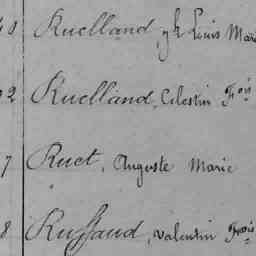 0 Ruelland, Louis Marie
2 Ruelland, Célestin Fois
7 Ruet, Auguste Marie
8 Ruffaud, Valentin Fois